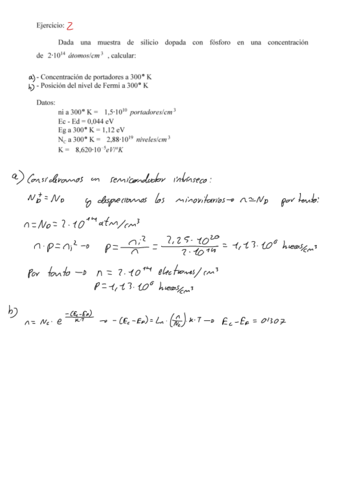 Ejercicio: 2
Dada una muestra de silicio dopada con fósforo en una concentración
de 2·10¹⁴ átomos/cm³ , calcular:
a) - Concentración de portadores a 300° K
b) - Posición del nivel de Fermi a 300° K
Datos:
ni a 300° K = 1,5·10¹⁰ portadores/cm³
Ec - Ed = 0,044 eV
Eg a 300° K = 1,12 eV
N_C a 300° K = 2,88·10¹⁹ niveles/cm³
K = 8,620·10⁻⁵ eV/°K
a) Consideramos un semiconductor intrínseco:
N_D⁺ = N_D y despreciamos los minoritarios → n = N_D por tanto:
n = N_D = 2·10¹⁴ atm/cm³
n·p = n_i² → p = n_i²/n = 2,25·10²⁰/2·10¹⁴ = 1,13·10⁶ huecos/cm³
Por tanto → n = 2·10¹⁴ electrones/cm³
P = 1,13·10⁶ huecos/cm³
b)
n = N_c · e^(-(E_c-E_F)/K·T) → -(E_c-E_F) = Ln(n/N_c) K·T → E_c - E_F = 0'307